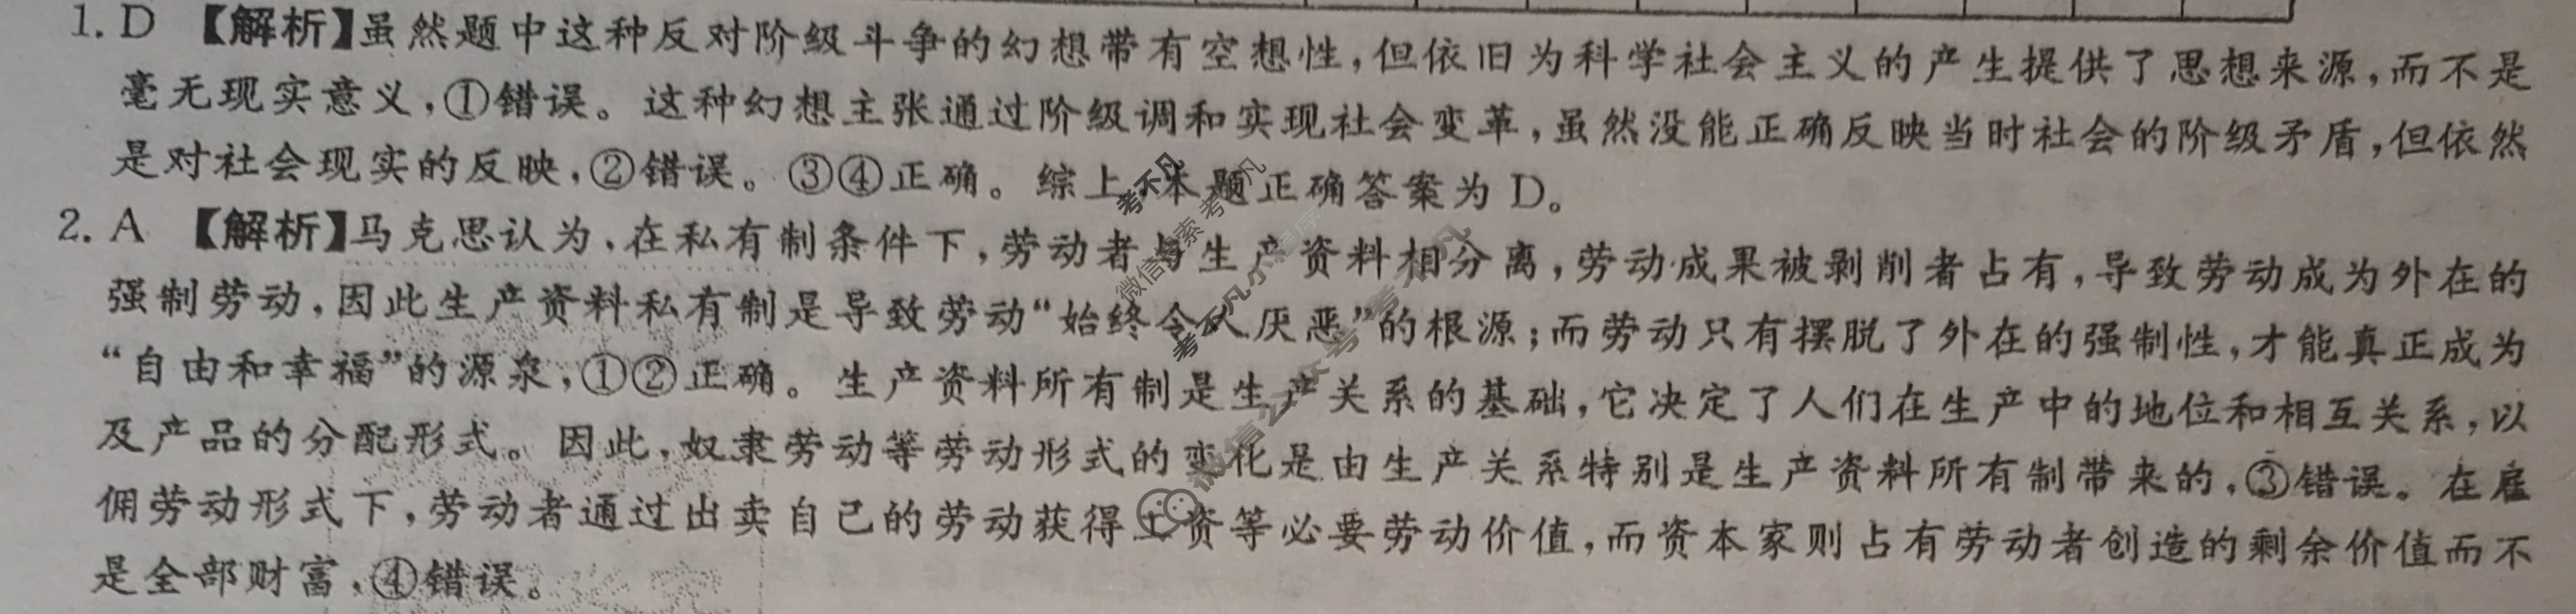 1. D 【解析】虽然题中这种反对阶级斗争的幻想带有空想性,但依旧为科学社会主义的产生提供了思想来源,而不是
毫无现实意义,①错误。这种幻想主张通过阶级调和实现社会变革,虽然没能正确反映当时社会的阶级矛盾,但依然
是对社会现实的反映,②错误。③④正确。综上,本题正确答案为 D。
2. A 【解析】马克思认为,在私有制条件下,劳动者与生产资料相分离,劳动成果被剥削者占有,导致劳动成为外在的
强制劳动,因此生产资料私有制是导致劳动“始终令人厌恶”的根源;而劳动只有摆脱了外在的强制性,才能真正成为
“自由和幸福”的源泉,①②正确。生产资料所有制是生产关系的基础,它决定了人们在生产中的地位和相互关系,以
及产品的分配形式。因此,奴隶劳动等劳动形式的变化是由生产关系特别是生产资料所有制带来的,③错误。在雇
佣劳动形式下,劳动者通过出卖自己的劳动获得工资等必要劳动价值,而资本家则占有劳动者创造的剩余价值而不
是全部财富,④错误。
考不凡
微信搜索考不凡
考不凡小程序
微信公众号:考不凡